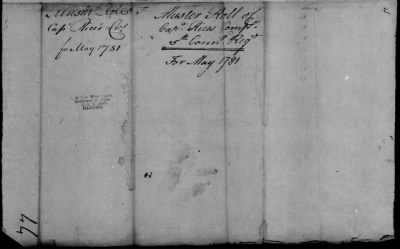 Muster Roll
Capt Rice's Co
for May 1781
Muster Roll of
Capt Rices Compy
5th Connt Regt
For May 1781
77